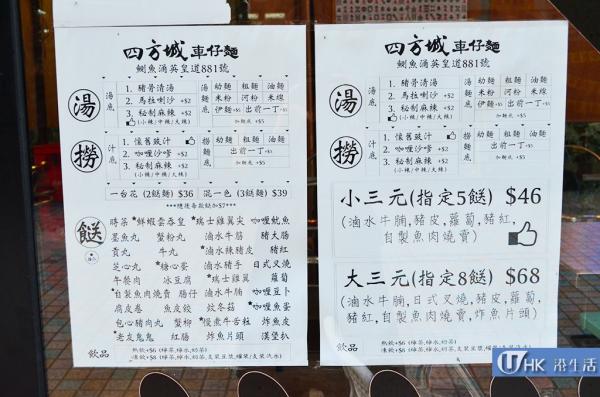 四方城車仔麵
鰂魚涌英皇道881號
湯
湯底
1. 豬骨清湯
2. 馬拉喇沙 +$2
3. 秘制麻辣 +$2
(小辣/中辣/大辣)
湯麵
幼麵 粗麵 油麵
米粉 河粉 米線
伊麵+$5 出前一丁+$5
撈
汁底
1. 懷舊豉汁
2. 咖喱沙爹 +$2
3. 秘制麻辣 +$2
(小辣/中辣/大辣)
撈麵
幼麵 粗麵 油麵
出前一丁+$5
一台花 (2餸麵) $36 混一色 (3餸麵) $39
餸
*鮮蝦雲吞皇 *瑞士雞翼尖 咖喱魷魚
墨魚丸 蟹粉丸 滷水牛筋 豬大腸
貢丸 牛丸 *滷水辣豬皮 豬紅
芝心丸 *糖心蛋 滷水豬手 日式叉燒
午餐肉 冰豆腐 *瑞士雞翼 蘿蔔
*自製魚肉燒賣 腸仔 滷水牛腩 咖喱豆卜
腐皮卷 魚皮餃 炆冬菇 *咖喱魚蛋
包心豬肉丸 蟹柳 *慢煮牛舌粒 炸魚皮
*老皮鬼鬼 紅腸 炸魚片頭 漢堡扒
飲品
四方城車仔麵
鰂魚涌英皇道881號
湯
湯底
1. 豬骨清湯
2. 馬拉喇沙 +$2
3. 秘制麻辣 +$2
(小辣/中辣/大辣)
湯麵
幼麵 粗麵 油麵
米粉 河粉 米線
伊麵+$5 出前一丁+$5
撈
汁底
1. 懷舊豉汁
2. 咖喱沙爹 +$2
3. 秘制麻辣 +$2
(小辣/中辣/大辣)
撈麵
幼麵 粗麵 油麵
出前一丁+$5
小三元(指定5餸) $46
(滷水牛腩,豬皮,蘿蔔,豬紅,
自製魚肉燒賣)
大三元(指定8餸) $68
(滷水牛腩,日式叉燒,豬皮,蘿蔔,
豬紅,自製魚肉燒賣,炸魚片頭)
飲品
U HK 港生活